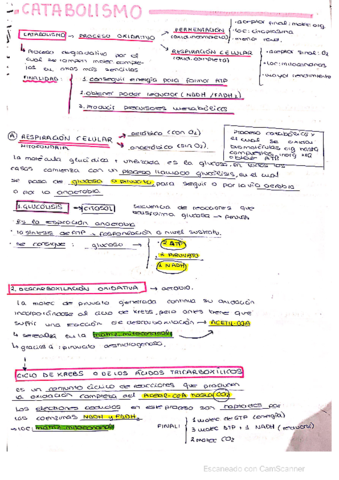 CATABOLISMO
CATABOLISMO → PROCESO OXIDATIVO
FERMENTACIÓN
(oxid. incompleta)
· aceptor final: molec. org
· loc: citoplasma
· menor rend.
RESPIRACIÓN CELULAR
(oxid. completa)
· aceptor final: O2
· loc: mitocondrias
· mayor rendimiento
Proceso degradativo por el
cual se rompen molec complejas
en otras más sencillas
FINALIDAD:
1. conseguir energía para formar ATP
2. Obtener poder reductor (NADH / FADH2)
3. Producir precursores metabólicos
A RESPIRACIÓN CELULAR
→ aeróbica (con O2)
→ anaeróbica (sin O2)
MITOCONDRIA
Proceso catabólico x
el cual se oxidan
biomoléculas org hasta
compuestos inorg
obtener ATP
La molécula glucídica + utilizada es la glucosa. En todos los
casos comienza con un proceso llamado glucólisis, en el cual
se pasa de glucosa a piruvato, para seguir o por la vía aerobia
o por la anaerobia
1. GLUCÓLISIS → CITOSOL
secuencia de reacciones que
transforma glucosa →
Es la respiración anaerobia
síntesis de ATP → fosforilación a nivel sustrato.
se consigue: glucosa →
2 ATP
2 PIRUVATO
2 NADH
2. DESCARBOXILACIÓN OXIDATIVA → AEROBIO.
La molec de piruvato generada continúa su oxidación
incorporándose al ciclo de Krebs, pero antes tiene que
sufrir una reacción de descarboxilación → ACETIL-COA
se realiza en la matriz mitocondrial
gracias a: piruvato deshidrogenasa.
CICLO DE KREBS O DE LOS ÁCIDOS TRICARBOXÍLICOS
Es un conjunto cíclico de reacciones que producen
la oxidación completa del ACETIL-COA hasta CO2
Los electrones cedidos en este proceso son captados por
las coenzimas NADH y FADH2
LOC: matriz mitocondrial
FINAL:
1 molec de GTP (energía)
3 NADH
2 molec CO2
Escaneado con CamScanner